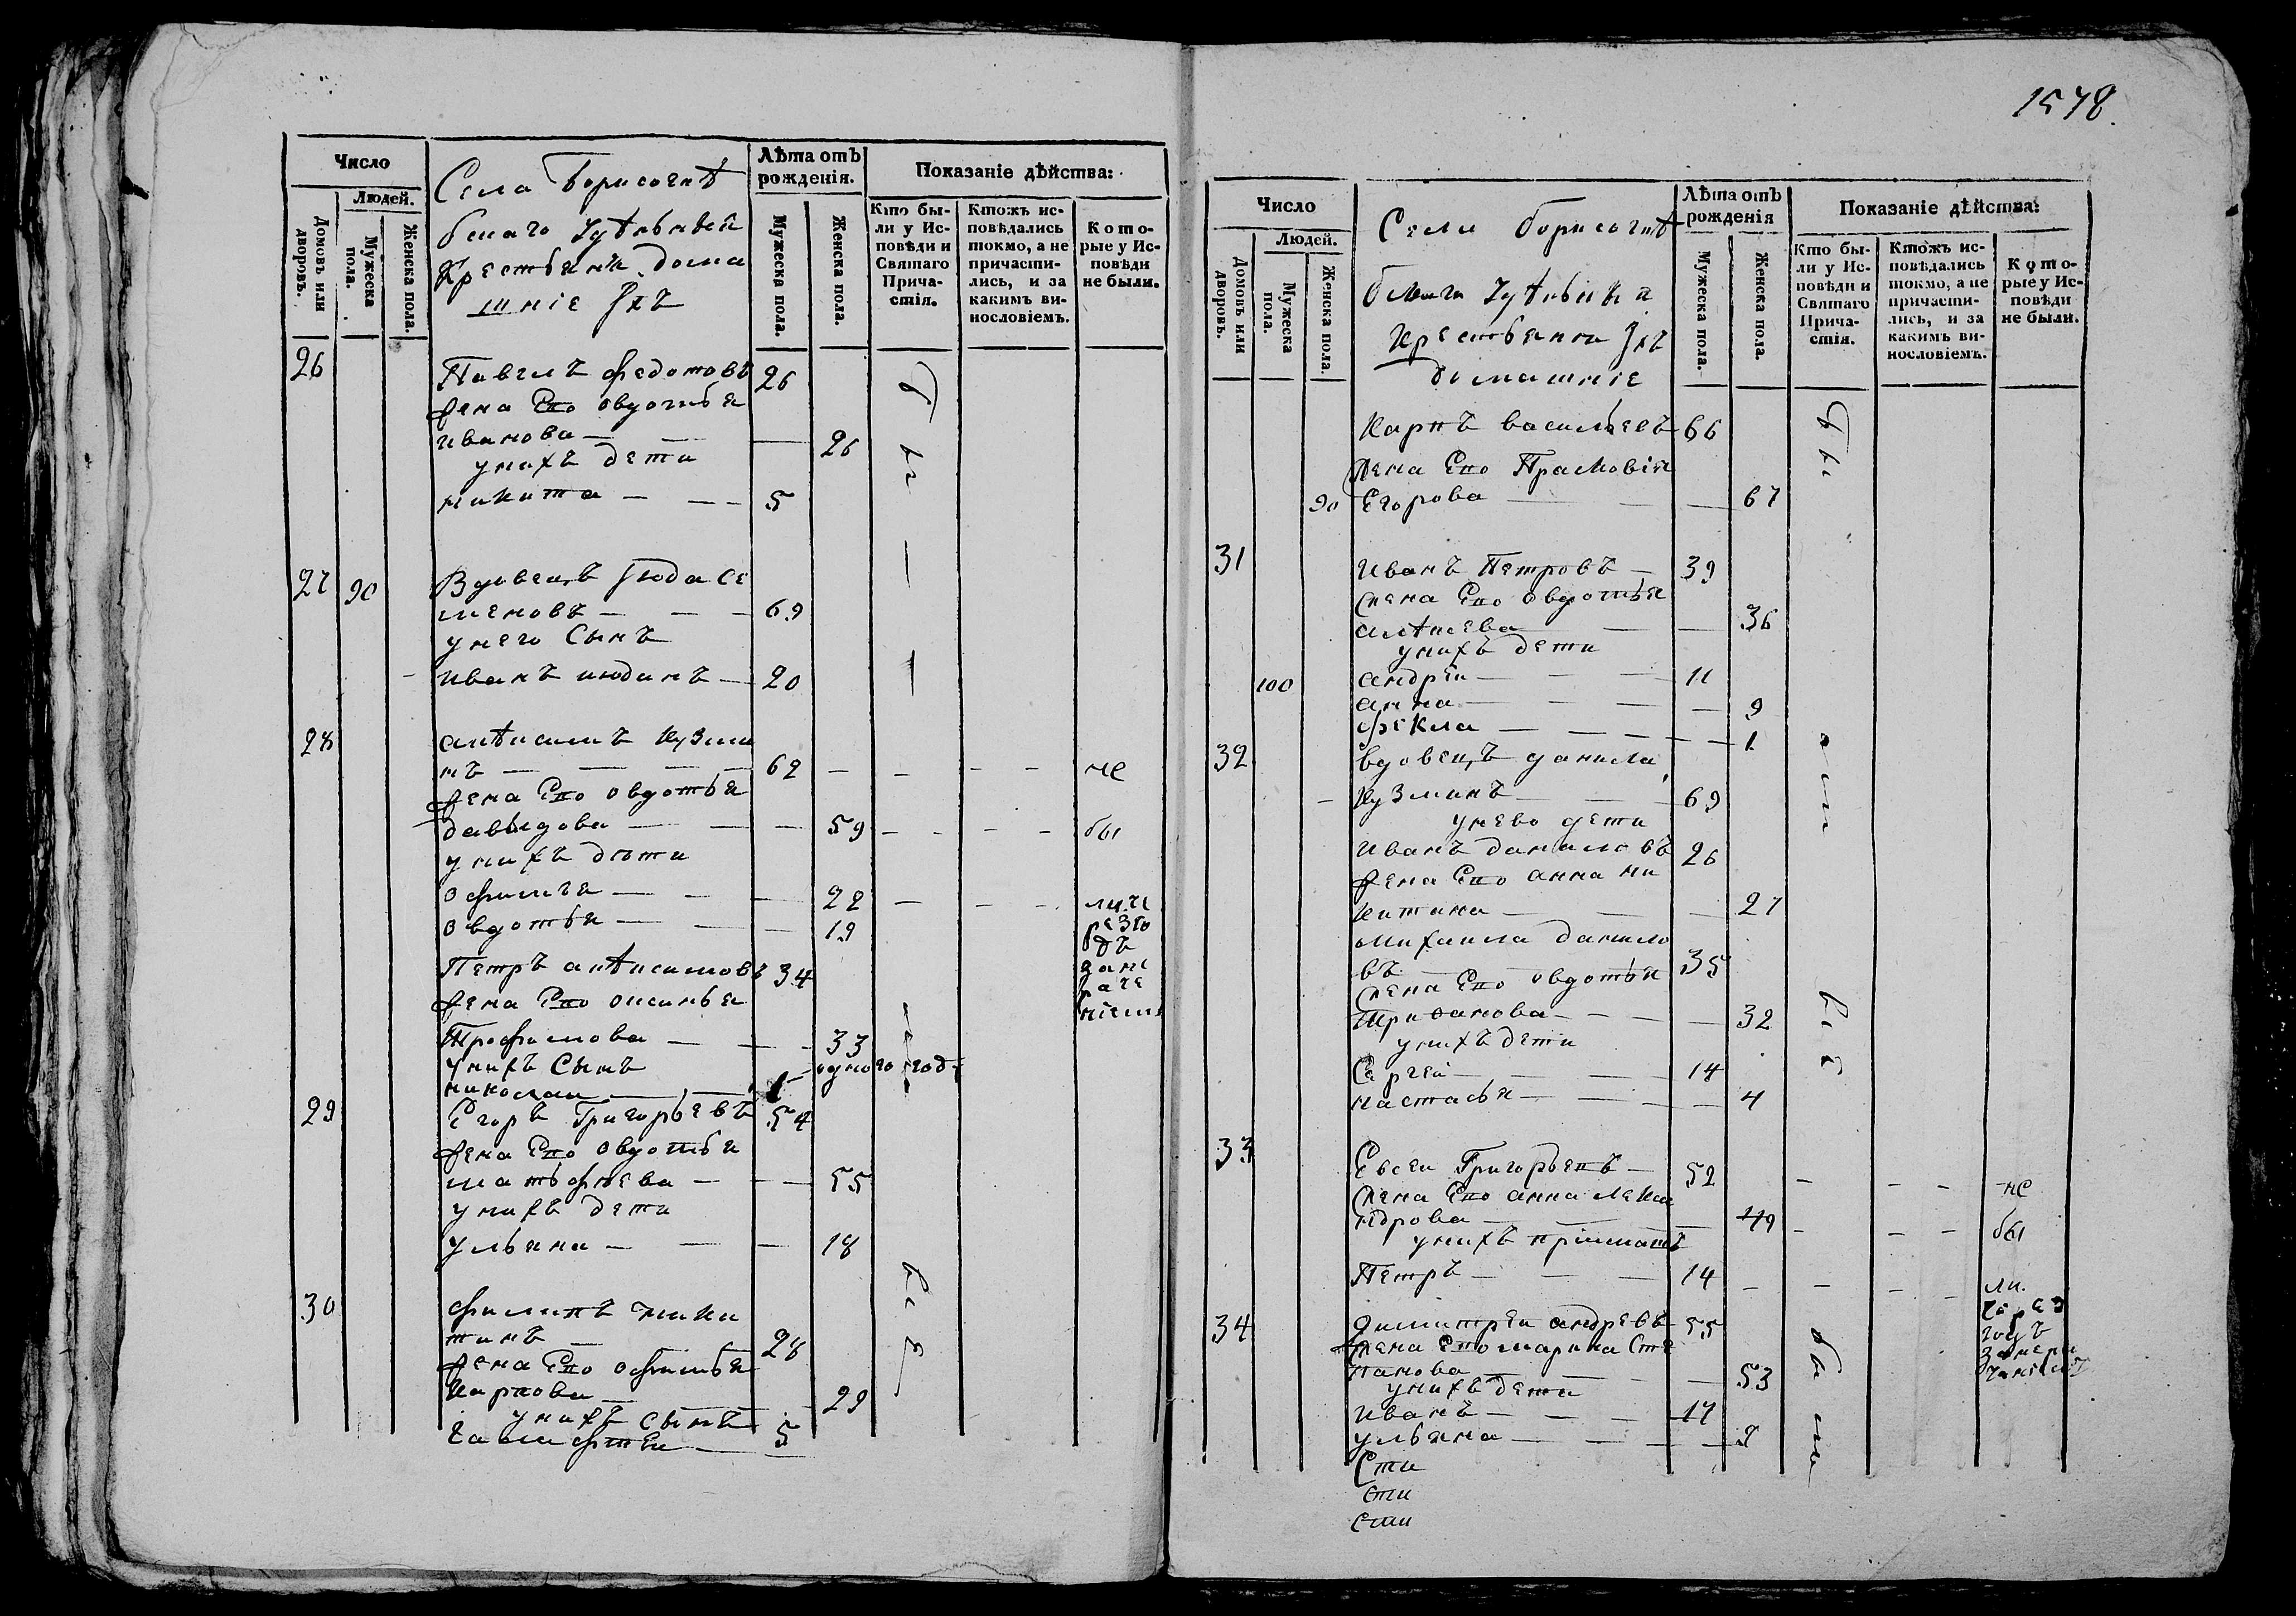 Число
Людей.
Домовъ или дворовъ.
Мужеска пола.
Женска пола.
Села Борисоглѣ
бскаго
Крестьяня дома
шніе ихъ
Лѣта отъ рожденія.
Мужеска пола.
Женска пола.
Показаніе дѣйства:
Кто бы-
ли у Ис-
повѣди и
Святаго
Прича-
стія.
Ктожъ ис-
повѣдались
токмо, а не
причасти-
лись, и за
какимъ ви-
нословіемъ.
Кото-
рые у Ис-
повѣди
не были.
26 Павелъ Федотовъ 26
жена Его Овдотья
иванова — — — 26
у нихъ дети
никита — — — 5
27 90 Вдовецъ Июда Се
меновъ — — — 69
у него Сынъ
иванъ июдинъ — 20
28 анѣсимъ Кузми
нъ — — — — 62 — — — — не
жена Его овдотья
давыдова — — — 59 — — — — бы
у нихъ дѣти
— — — 22 — — —
овдотья — — — 19
Петръ анѣсимовъ 34
жена Его аксинья
Трофимова — — — 33
у нихъ Сынъ одного года
николаи — — 1
29 Егоръ Григорьевъ 54
жена Его Овдотья
матьфѣева — — — 55
у нихъ дети
ульяна — — — 18
30 филипъ ники
тинъ — 28
жена Его офимья
Карпова — — 29
у нихъ сынъ
— 5
1578.
Число
Людей.
Домовъ или дворовъ.
Мужеска пола.
Женска пола.
Села Борисоглѣ
бскаго
Крестьяня ихъ
домашніе
Лѣта отъ рожденія
Мужеска пола.
Женска пола.
Показаніе дѣйства:
Кто бы-
ли у Ис-
повѣди и
Святаго
Прича-
стія.
Ктожъ ис-
повѣдались
токмо, а не
причасти-
лись, и за
какимъ ви-
нословіемъ.
Кото-
рые у Ис-
повѣди
не были.
Карпъ васильевъ 66
жена Его Прасковія
90 Егорова — — — 67
31 иванъ Петровъ — 39
жена Его овдотья
— — 36
у нихъ дети
100 андреи — — — 11
анна — — — — 9
фекла — — — — 1
32 вдовецъ данила
Кузминъ — — — 69
у нево дети
иванъ даниловъ 26
жена Его анна ни
китина — — — 27
михаила данило
въ — 35
жена Его овдотья
— — — 32
у нихъ дети
Сергеи — — — 14
настасья — — — 4
33 Евсеи Григорьевъ — 52 — — — не
жена Его анна лекса
ндрова — — — 49 — — — бы
у нихъ приимышъ
Петръ — — — 14 — — — — ли.
через
годъ
34 димитреи андревъ 55
жена Его марина Сте
панова — — — 53
у нихъ дети
иванъ — — — 17
ульяна — — — 9
Сти
сти
сти